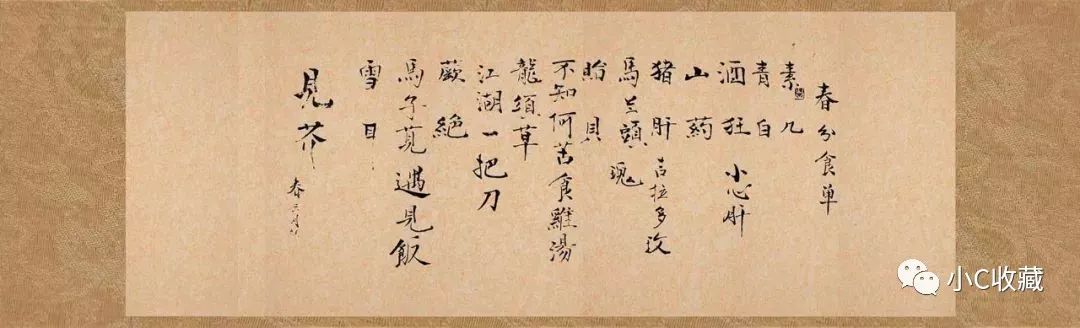 春分食单
素几
青白
酒狂 小心肝
山药
猪肝 吉拉多
馬兰頭 瑰
貽貝
不知何苦食雞湯
龍須草
江湖一把刀
蕨 絶
馬子莧 遇見飯
雪目
見芥
春三月
小C收藏